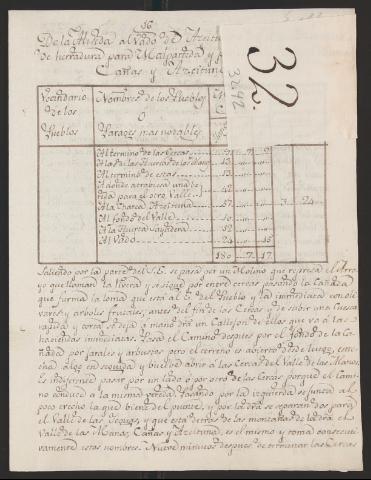 36
De la Alseda al Vado de Azeitu
de herradura para Malpartida y
Cañas y Azeituna
32.
3242
Vecindario de los Pueblos
Nombres de los Pueblos
O
Parages mas notables
Al termino de las Cercas
A las de las Huertas de los
Al termino de estas 13
Adonde atrapiesa una
rida para el otro Valle 42
A la Charca Azeituna 57 3 24
Al fondo del Valle 10
A la Huerta 12
Al Vado 24 15
180 7 17
Saliendo por la parte del N.E. se pasa por un Molino que represa el Arro-
yo que llaman la Rivera y se sigue por entre cercas pasando la Cañada
que forma la loma que está al E. del Pueblo y la inmediata con oli-
vares y arboles frutales, antes del fin de las Cercas y de subir una cuesta
rapida y corta se deja a mano dra un Callejon de ellas que va a las
haciendas inmediatas. Pasa el Camino despues por el fondo de la Ca-
ñada por jarales y arbustos pero el terreno es abierto desde luego, ense-
cha algo en seguida y buelve abrir a las Cercas del Valle de las Manas.
Es indiferente pasar por un lado ó por otro de las Cercas porque el Cami-
no conduce a la misma vereda, pasando por la izquierda se junta al
poco trecho la que biene del puente, y por la dra se separan dos para
el Valle de las Yeguas, y que esta detras de las montañas de la dra el
Valle de las Manas, Cañas y Azeituna, es el mismo y toma consecuti-
vamente estos nombres. Nueve minutos despues de terminar las Cercas